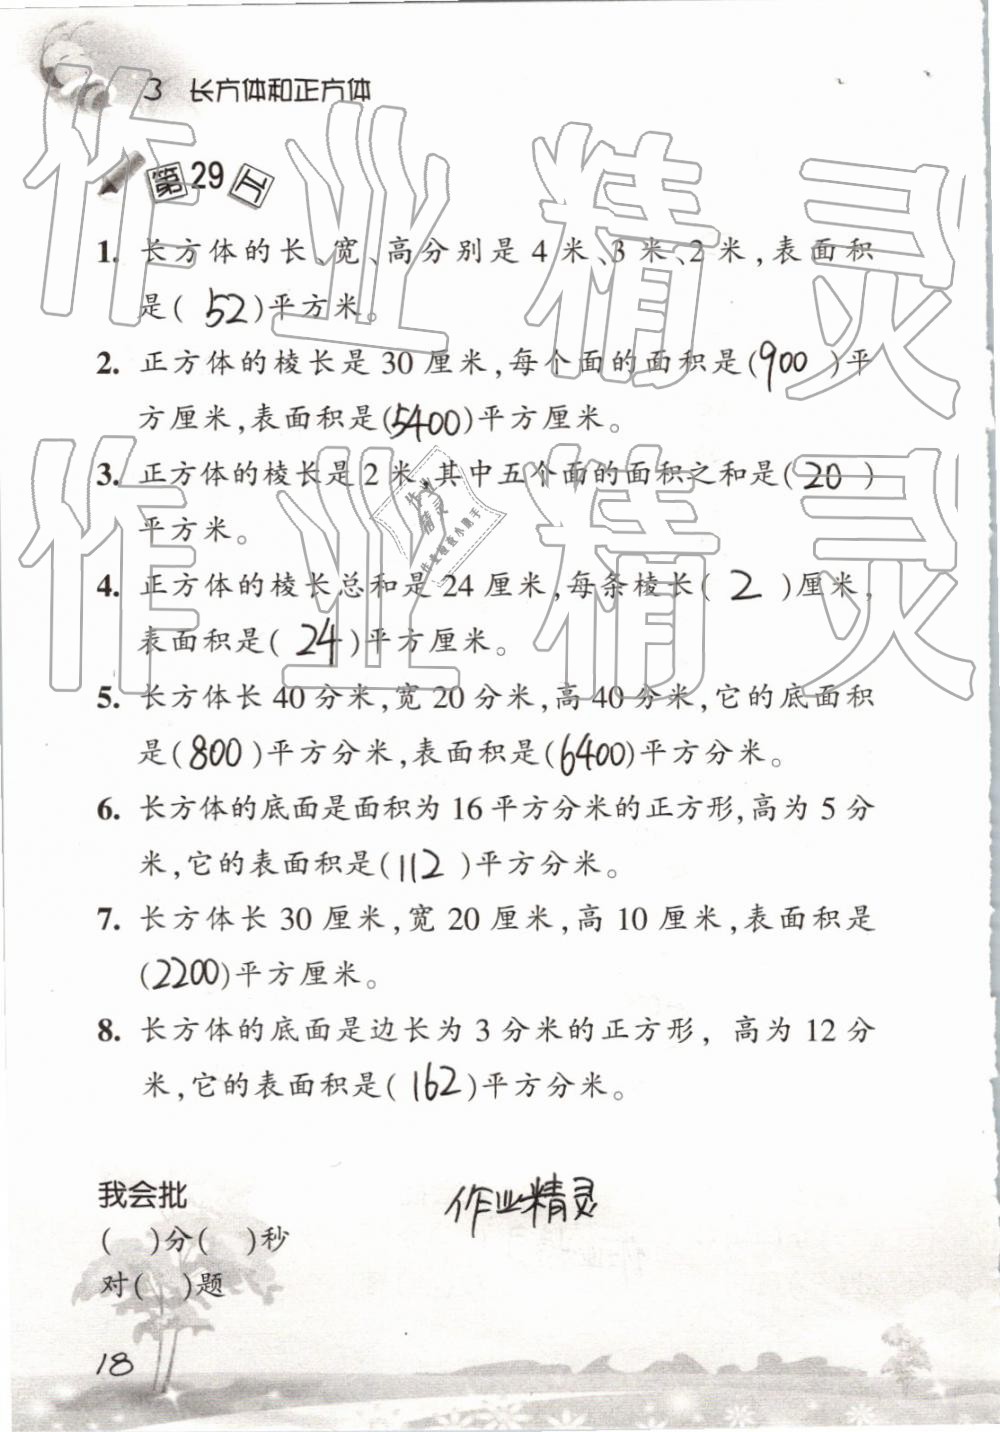 3 长方体和正方体
第29页
1. 长方体的长、宽、高分别是 4 米、3 米、2 米,表面积
是( 52 )平方米。
2. 正方体的棱长是 30 厘米,每个面的面积是(900 )平
方厘米,表面积是(5400)平方厘米。
3. 正方体的棱长是 2 米,其中五个面的面积之和是( 20 )
平方米。
4. 正方体的棱长总和是 24 厘米,每条棱长( 2 )厘米,
表面积是( 24 )平方厘米。
5. 长方体长 40 分米,宽 20 分米,高 40 分米,它的底面积
是(800 )平方分米,表面积是(6400)平方分米。
6. 长方体的底面是面积为 16 平方分米的正方形,高为 5 分
米,它的表面积是(112 )平方分米。
7. 长方体长 30 厘米,宽 20 厘米,高 10 厘米,表面积是
(2200)平方厘米。
8. 长方体的底面是边长为 3 分米的正方形, 高为 12 分
米,它的表面积是( 162 )平方分米。
我会批
( )分( )秒
对( )题
作业精灵
18
作业精灵
作业精灵
作业
精灵
作业检查小助手